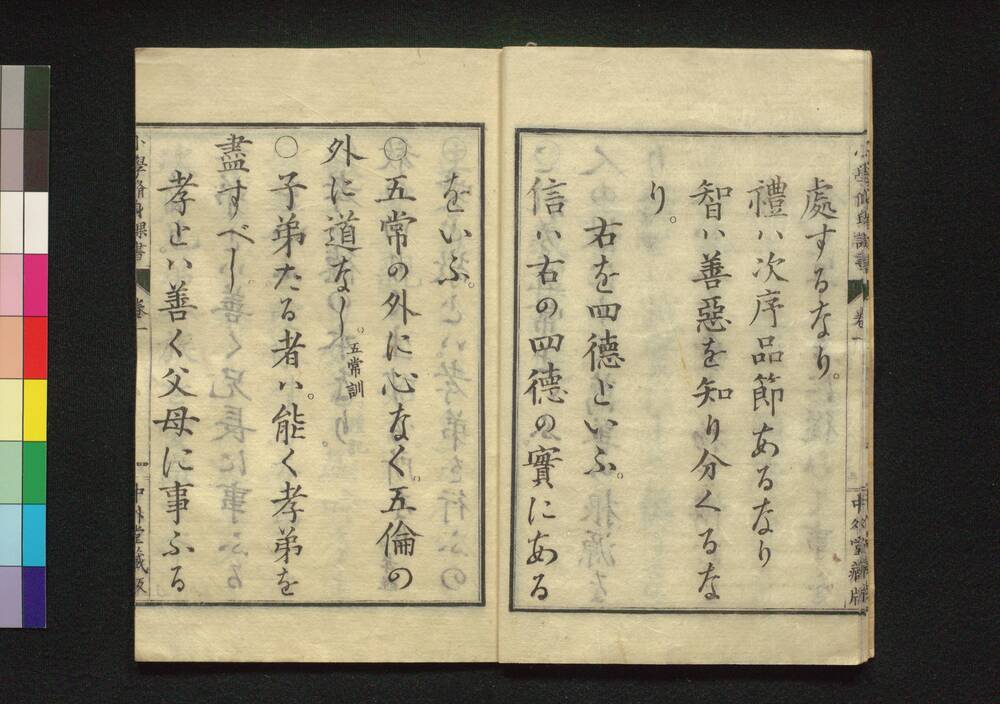 處するなり。
禮ハ次序品節あるなり
智ハ善惡を知り分くるな
り。
右を四德といふ。
信ハ右の四德の實にある
をいふ。
○五常の外に心なく。五倫の
外に道なし。五常訓
○子弟たる者ハ。能く孝弟を
盡すべし。
孝とハ善く父母に事ふる
小學脩身課書
卷一
一
中外堂藏版